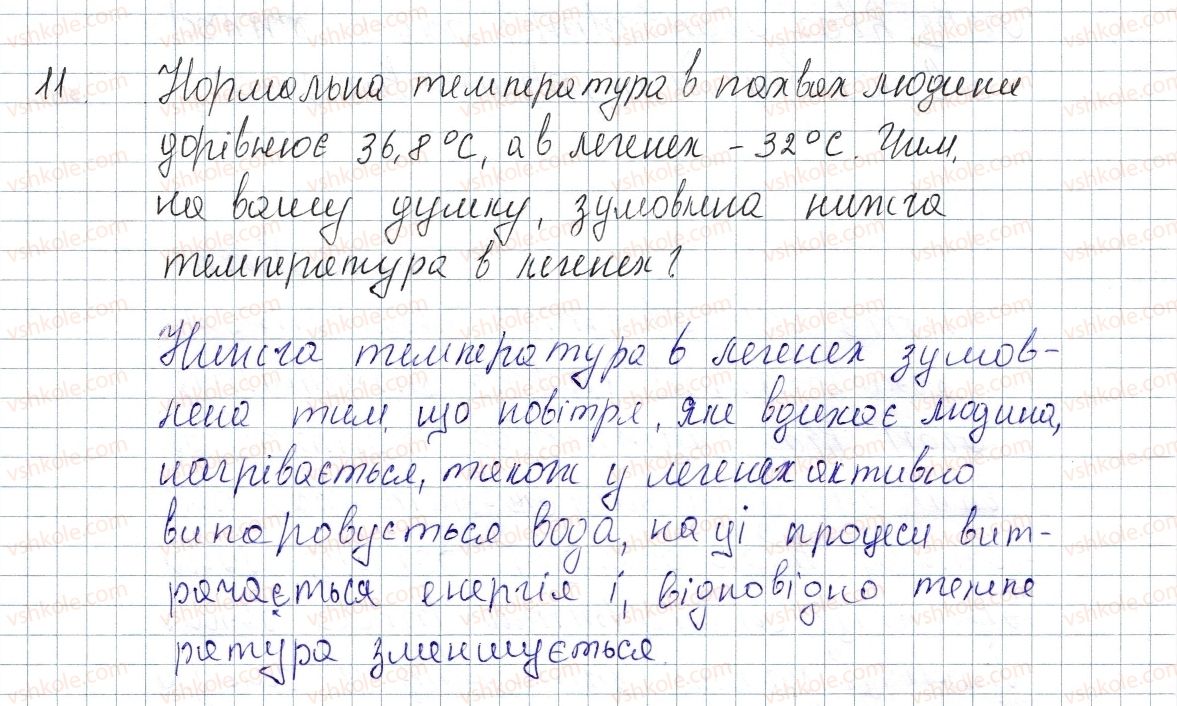 11. Нормальна температура в пахвах людини
дорівнює 36,8°C, а в легенях - 32°C. Чим,
на вашу думку, зумовлена нижча
температура в легенях?
Нижча температура в легенях зумов-
лена тим, що повітря, яке вдихає людина,
нагрівається, також у легенях активно
випаровується вода, на ці процеси вит-
рачається енергія і, відповідно темпе
ратура зменшується.